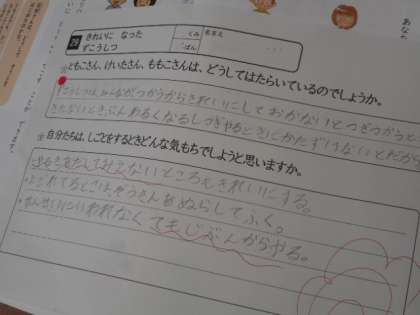 29 きれいに なった ずこうしつ
くみ
ばん
名まえ
☆ともこさん、けいたさん、ももこさんは、どうしてはたらいているのでしょうか。
ずこうしつは、みんながつかうからきれいにしておかないとつぎつかうと
きたないときぶんわるくなるしつぎやるときにかたずけないとだから
☆自分たちは、しごとをするときどんな気もちでしようと思いますか。
ないところもきれいにする。
よごれてるときはぞうきんをぬらしてふく。
せんせいにいわれなくてもじぶんからやる。